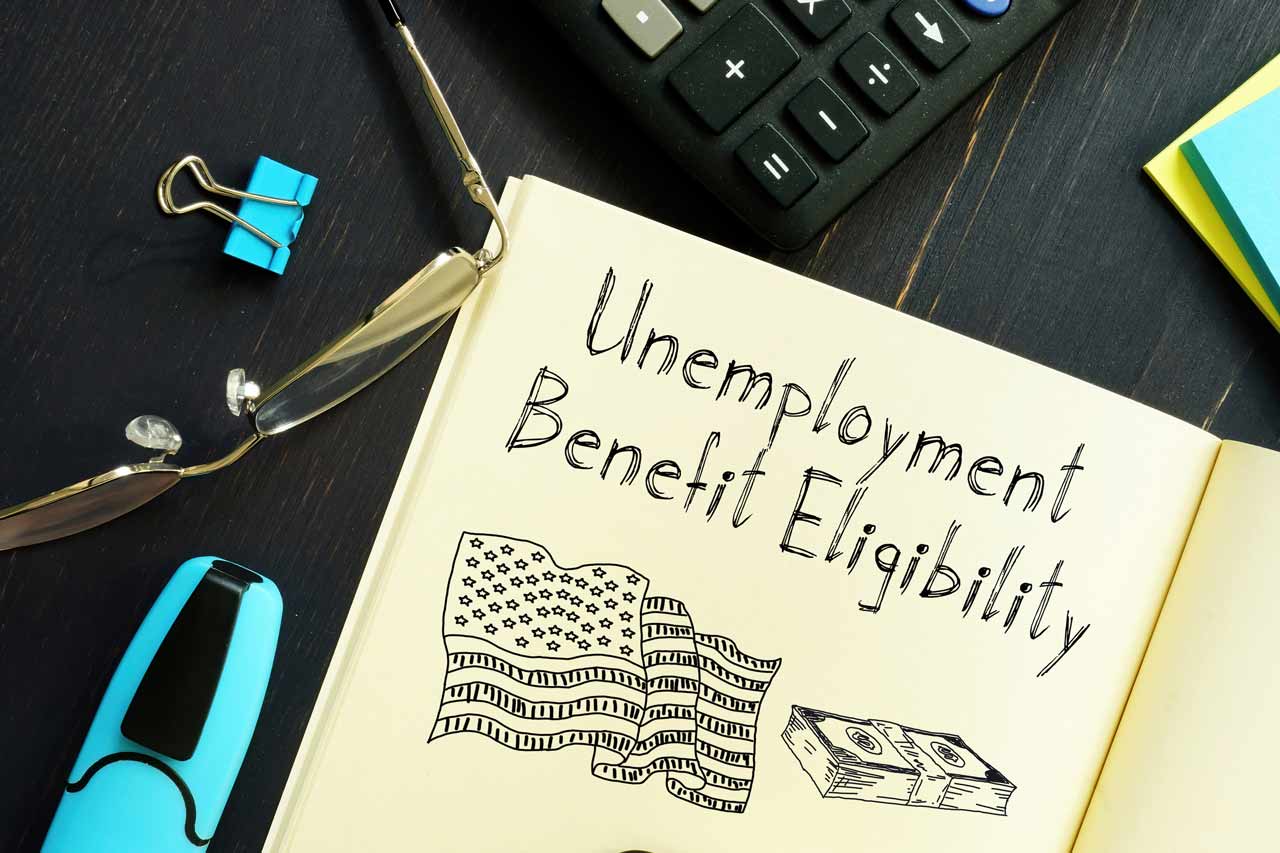 Unemployment
Benefit Eligibility